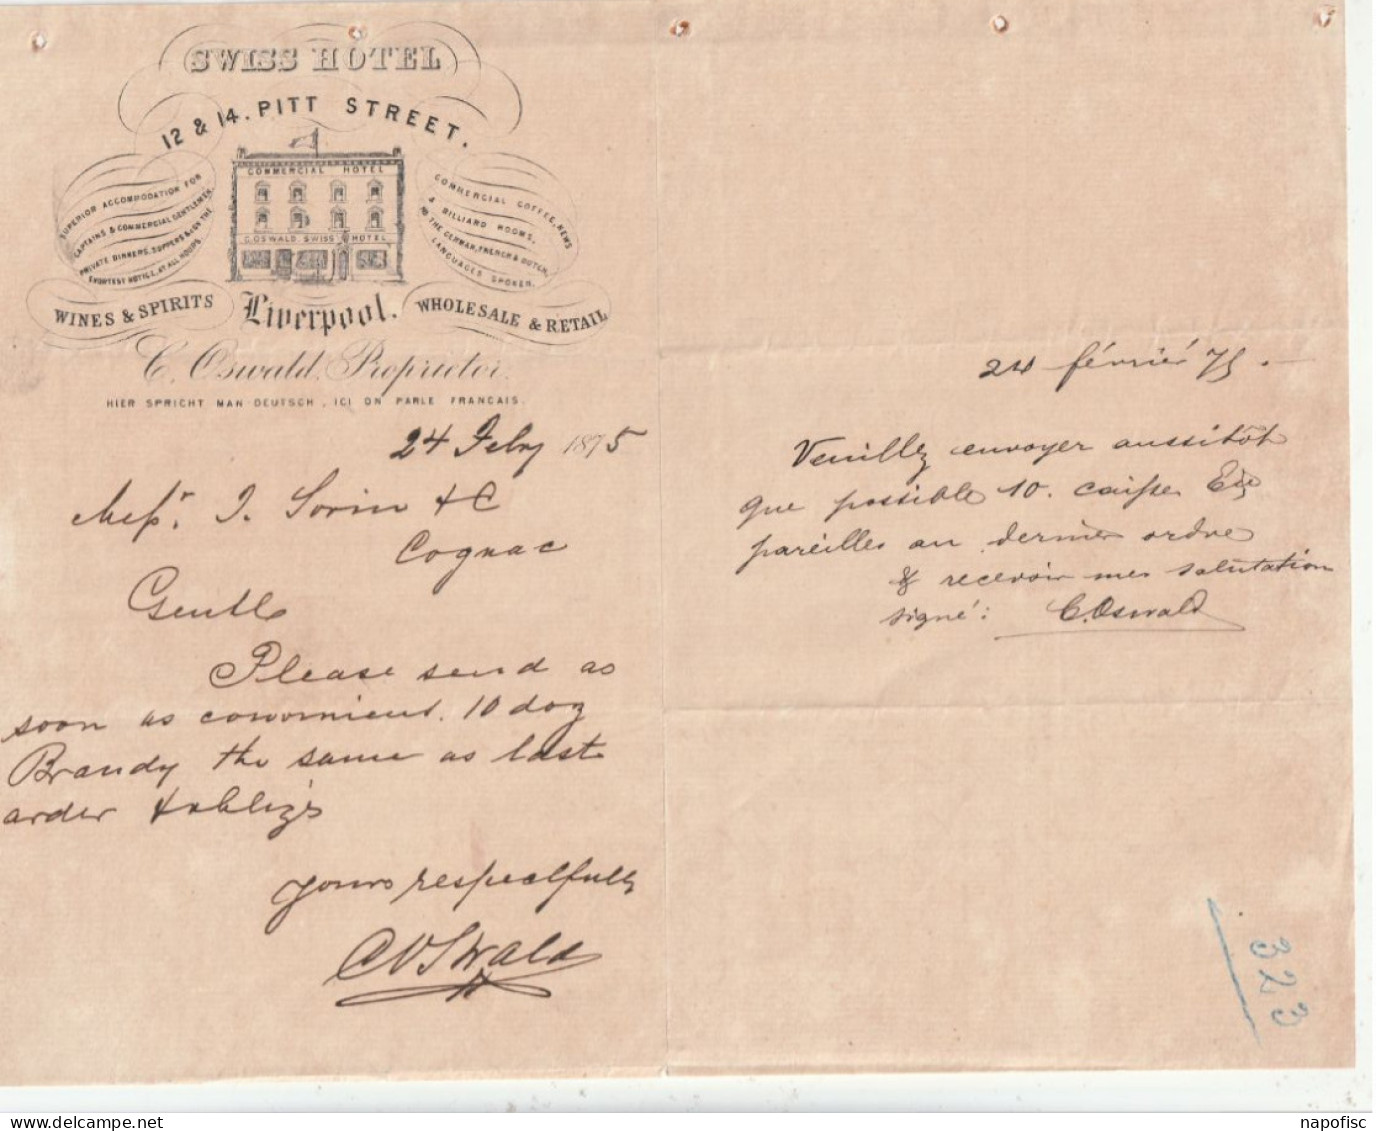 SWISS HOTEL
12 & 14. PITT STREET.
SUPERIOR ACCOMMODATION FOR
CAPTAINS & COMMERCIAL GENTLEMEN.
PRIVATE DINNERS, SUPPERS &c ON THE
SHORTEST NOTICE, AT ALL HOURS.
COMMERCIAL HOTEL
C. OSWALD. SWISS HOTEL
COMMERCIAL COFFEE, NEWS
& BILLIARD ROOMS,
THE GERMAN, FRENCH & DUTCH,
LANGUAGES SPOKEN.
WINES & SPIRITS
Liverpool.
WHOLESALE & RETAIL
C. Oswald, Proprietor.
HIER SPRICHT MAN DEUTSCH, ICI ON PARLE FRANCAIS.
24 Feby 1875
Messr. J. Sorin & C
Cognac
Gentle
Please send as
soon as convenient. 10 doz
Brandy the same as last
order & oblige
yours respectfully
C Oswald
24 février 75. —
Veuillez envoyer aussitôt
que possible 10. caisse
pareilles au dernier ordre
& recevoir mes salutation
signé: C. Oswald
323
napofisc